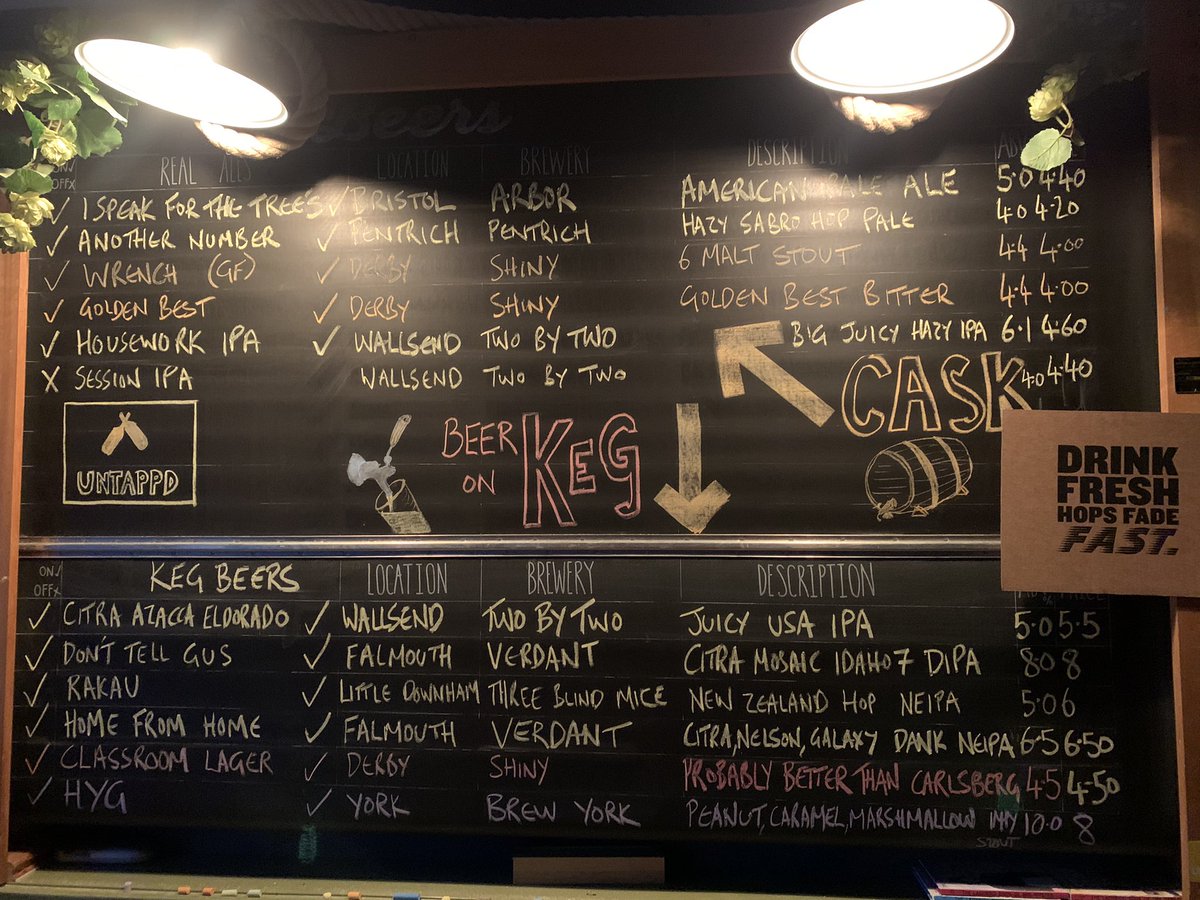 BEERS
ON/ OFFX REAL ALES LOCATION BREWERY DESCRIPTION
✓ I SPEAK FOR THE TREES ✓ BRISTOL ARBOR AMERICAN PALE ALE 5.0 4.40
✓ ANOTHER NUMBER ✓ PENTRICH PENTRICH HAZY SABRO HOP PALE 4.0 4.20
✓ WRENCH (GF) ✓ DERBY SHINY 6 MALT STOUT 4.4 4.00
✓ GOLDEN BEST ✓ DERBY SHINY GOLDEN BEST BITTER 4.4 4.00
✓ HOUSEWORK IPA ✓ WALLSEND TWO BY TWO BIG JUICY HAZY IPA 6.1 4.60
X SESSION IPA WALLSEND TWO BY TWO 4.0 4.40
CASK
UNTAPPD
BEER ON KEG
DRINK
FRESH
HOPS FADE
FAST.
ON/ OFFX KEG BEERS LOCATION BREWERY DESCRIPTION
✓ CITRA AZACCA ELDORADO ✓ WALLSEND TWO BY TWO JUICY USA IPA 5.0 5.5
✓ DON'T TELL GUS ✓ FALMOUTH VERDANT CITRA MOSAIC IDAHO 7 DIPA 8.0 8
✓ RAKAU ✓ LITTLE DOWNHAM THREE BLIND MICE NEW ZEALAND HOP NEIPA 5.0 6
✓ HOME FROM HOME ✓ FALMOUTH VERDANT CITRA, NELSON, GALAXY DANK NEIPA 6.5 6.50
✓ CLASSROOM LAGER ✓ DERBY SHINY PROBABLY BETTER THAN CARLSBERG 4.5 4.50
✓ HYG ✓ YORK BREW YORK PEANUT, CARAMEL, MARSHMALLOW IMPY 10.0 8
STOUT